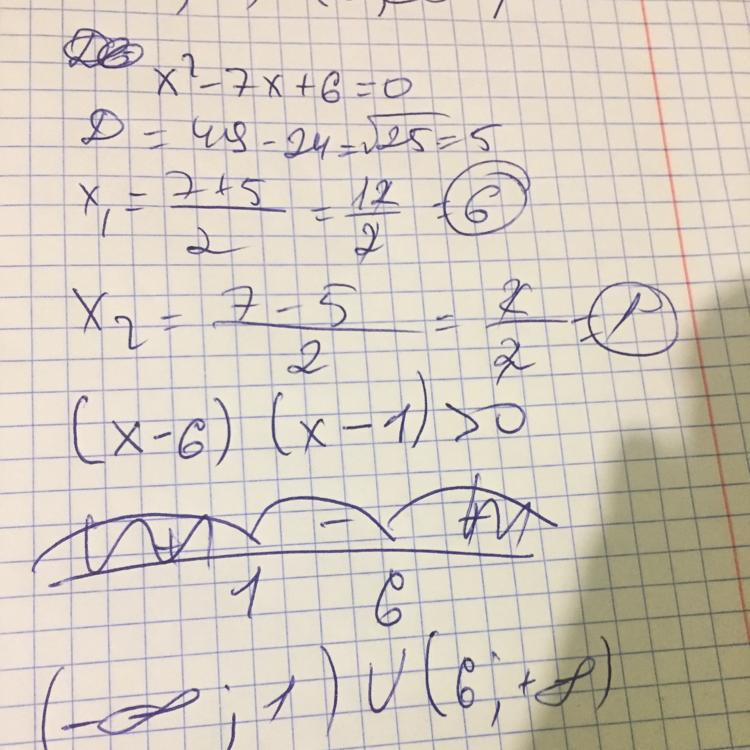 x² - 7x + 6 = 0
D = 49 - 24 = √25 = 5
x₁ = (7+5)/2 = 12/2 = 6
x₂ = (7-5)/2 = 2/2 = 1
(x-6) (x-1) > 0
+ - +
1 6
(-∞; 1) ∪ (6; +∞)